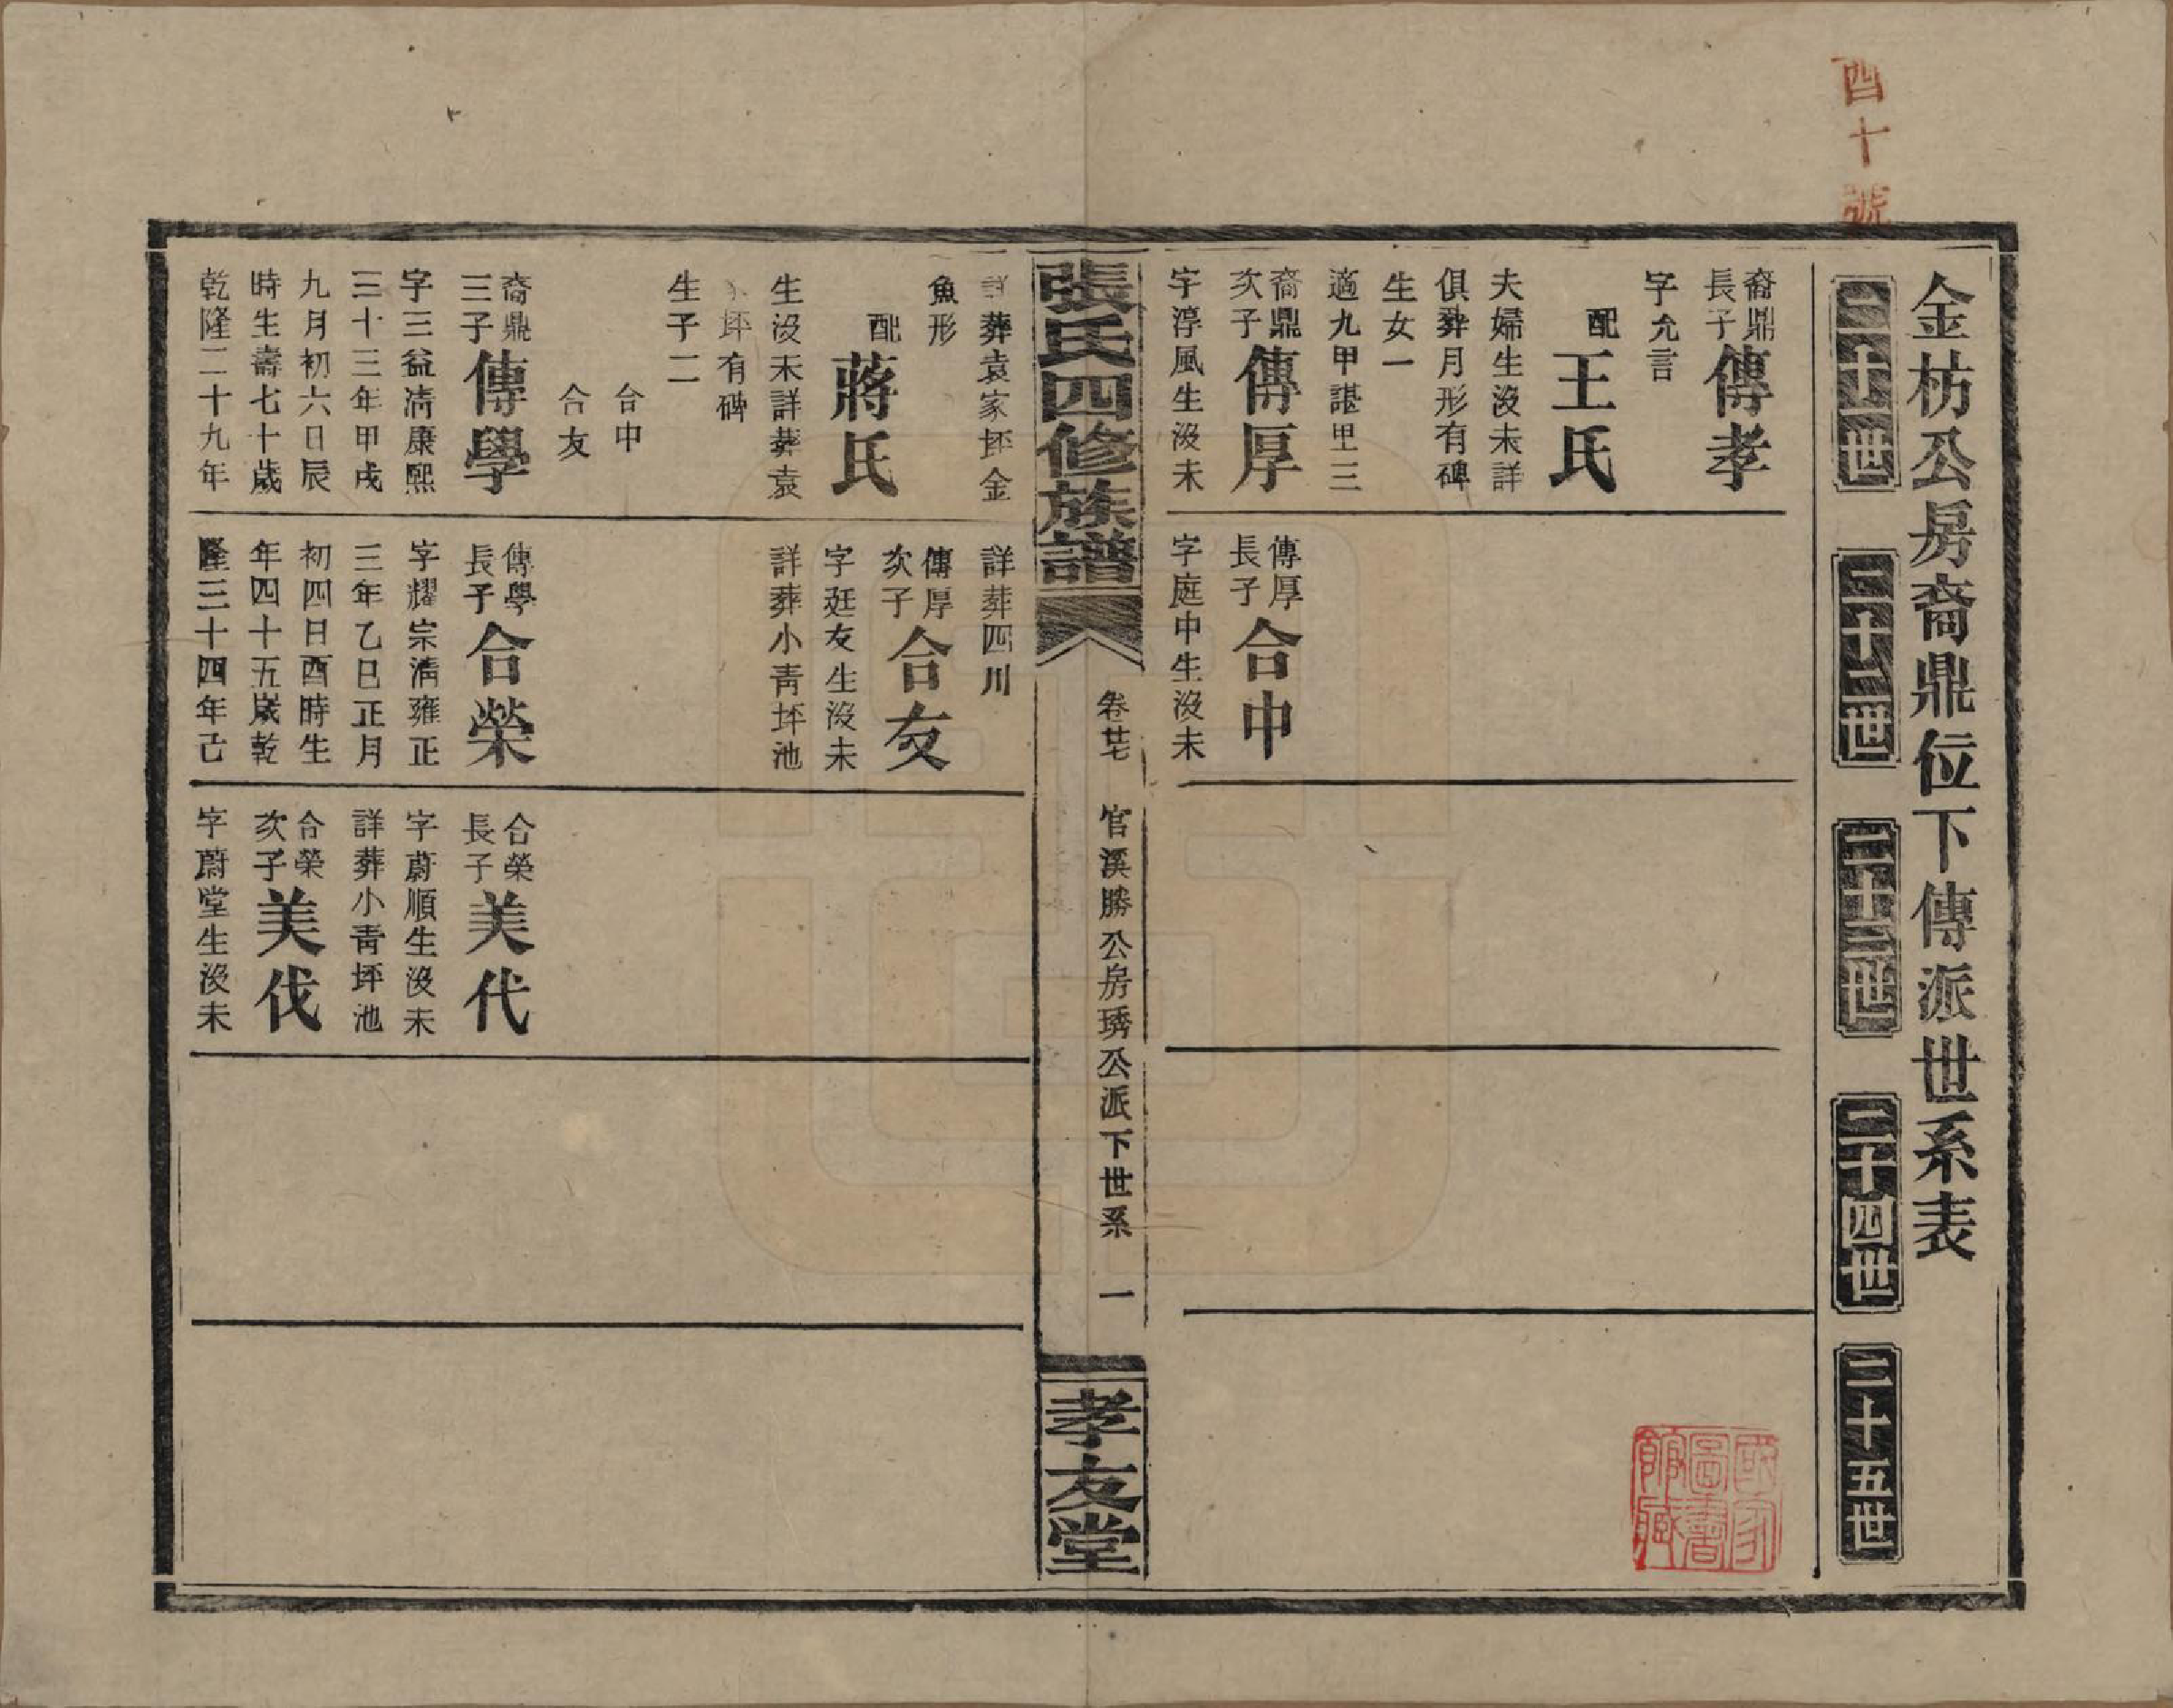 四十號
金枋公房裔鼎位下傳派世系表
二十一世
二十二世
二十三世
二十四世
二十五世
裔鼎長子傳孝
字允言
配王氏
夫婦生沒未詳
俱葬月形有碑
生女一
適九甲諶里三
裔鼎次子傳厚
字淳風生沒未
傳厚長子合中
字庭中生沒未
國家圖書館藏
張氏四修族譜
卷廿七
官溪勝公房琇公派下世系
一
孝友堂
詳葬袁家坪金
魚形
配蔣氏
生沒未詳葬袁
坪有碑
生子二
合中
合友
裔鼎三子傳學
字三益清康熙
三十三年甲戌
九月初六日辰
時生壽七十歲
乾隆二十九年
詳葬四川
傳厚次子合友
字廷友生沒未
詳葬小青坪池
傳學長子合榮
字耀宗清雍正
三年乙巳正月
初四日酉時生
年四十五歲乾
隆三十四年己
合榮長子美代
字蔚順生沒未
詳葬小青坪池
合榮次子美伐
字蔚堂生沒未